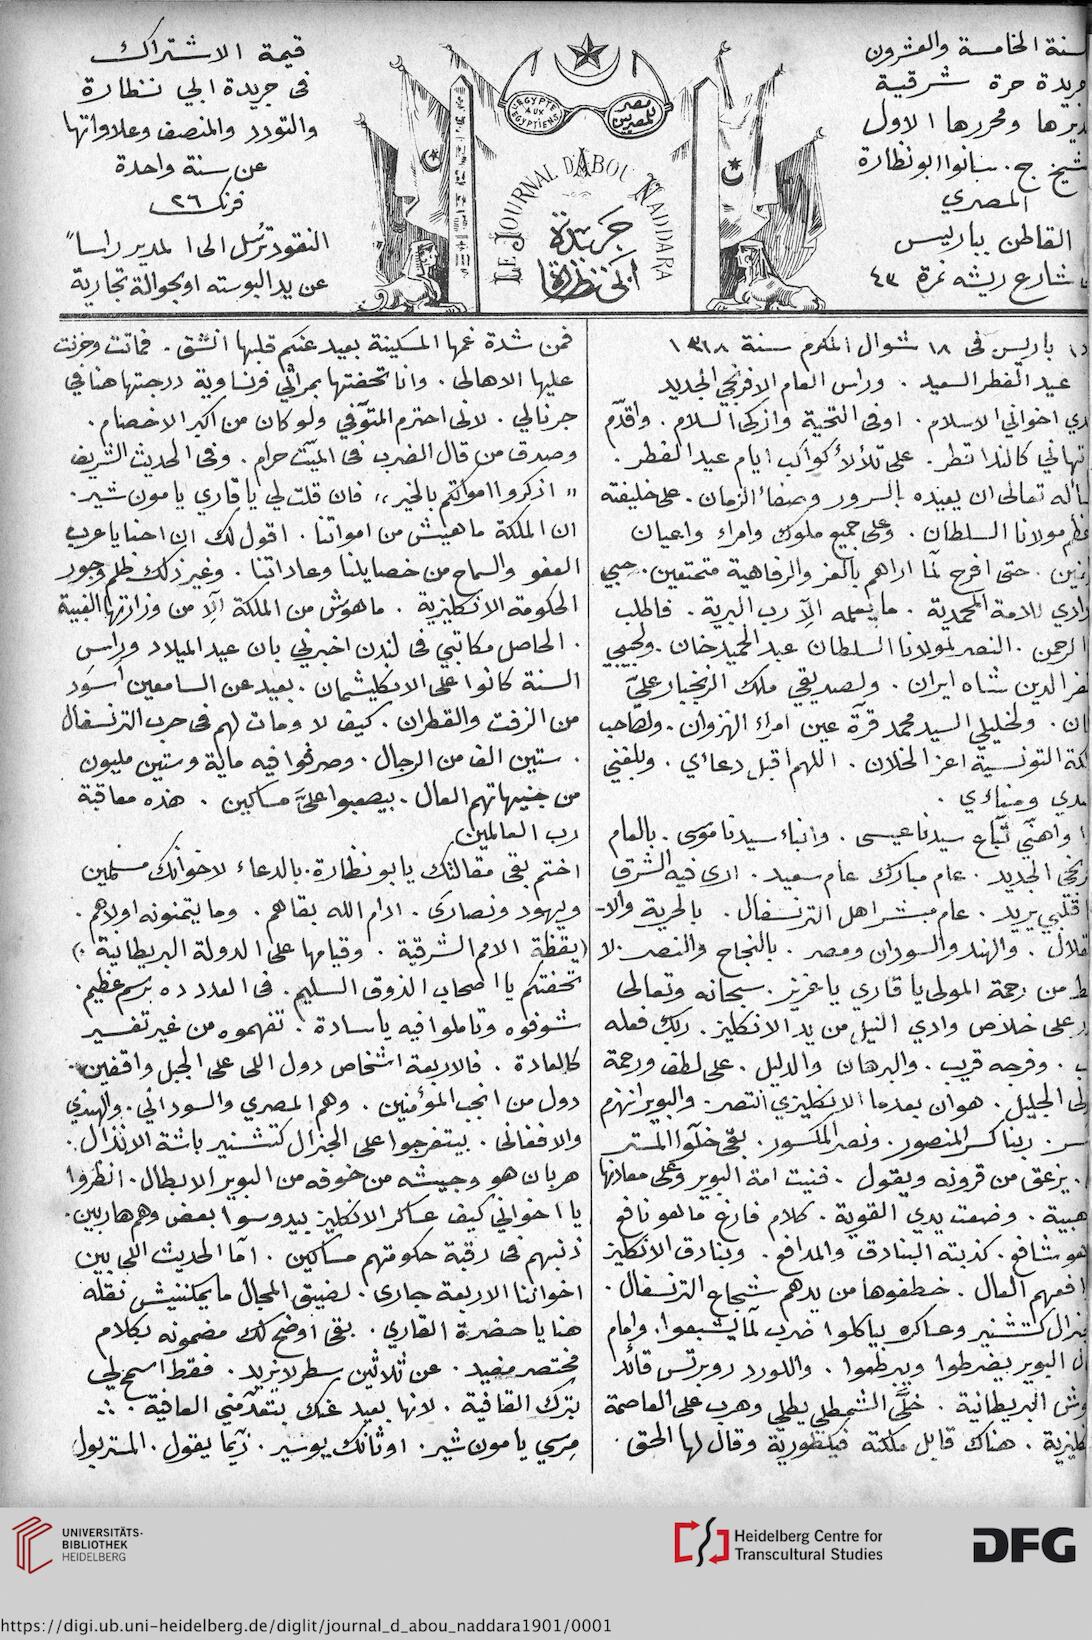 سنة الخامسة والعشرون
جريدة حرة شرقية
مديرها ومحررها الاول
شيخ ج. سانوا ابو نظارة
المصري
القاطن بباريس
شارع ريشه نمرة ٤٣
L'EGYPTE
AUX
EGYPTIENS
مصر
للمصريين
LE JOURNAL D'ABOU NADDARA
جريدة
ابي نظارة
قيمة الاشتراك
فى جريدة ابي نظارة
والتودد والمنصف وعلاواتها
عن سنة واحدة
فرنك ٢٦
النقود ترسل الى المدير راسا
عن يد البوسته او بحوالة تجارية
باريس فى ١٨ شوال المكرم سنة ١٣١٨
عيد الفطر السعيد . وراس العام الافرنجي الجديد
اخواني الاسلام . اوفى التحية وازكى السلام . واقدم
تهاني كالندا تطر . على تلألأ كواكب ايام عيد الفطر .
تعالى ان يعيده بالسرور وصفاء الزمان . على خليفته
مولانا السلطان . وعلى جميع ملوك وامراء واعيان
حتى افرح لما اراهم بالعز والرفاهية متمتعين . حبي
للامة المحمدية . ما يعلمه الا رب البرية . فاطلب
الرحمن . النصر لمولانا السلطان عبد الحميد خان . ولحبيبي
الدين شاه ايران . ولصديقي ملك الزنجبار علي
ولخليلي السيد محمد قرة عين امراء النزوان . ولصاحب
التونسية اعز الخلان . اللهم اقبل دعائي . وبلغني
ومنائي .
واهني تباع سيدنا عيسى . وانباء سيدنا موسى . بالعام
الجديد . عام مبارك عام سعيد . ارى فيه الشرق
قلبي يريد . عام مبشر اهل الترنسفال . بالحرية والا-
. والهند والسودان ومصر . بالنجاح والنصر . لا
من رحمة المولى يا قاري يا عزيز . سبحانه وتعالى
على خلاص وادي النيل من يد الانكليز . ربك فعله
. وفرجه قريب . والبرهان والدليل . على لطف ورحمة
الجليل . هو ان بعدما الانكليزي انتصر . والبوير انهزم
. ربنا كسر المنصور . ونصر المكسور . بقى خلوا المستر
يزعق من قرونه ويقول . فنيت امة البوير وعلى معادنها
. وضعت يدي القوية . كلام فارغ ما لهو نافع
شافع . كذبته البنادق والمدافع . وبنادق الانكليز
العال . خطفوها من يدهم شجاع الترنسفال .
كتشنير وعساكره بياكلوا ضرب لما يشبعوا . وامام
البوير بيضرطوا ويبرطعوا . واللورد روبرتس قائد
البريطانية . خلى الشمطلي يطلي وهرب على العاصمة
. هناك قابل ملكته فيكتورية وقال لها الحق .
فمن شدة غمها المسكينة بعيد عنكم قلبها انشق . فماتت وحزنت
عليها الاهالى . وانا تحفتها بمراثي فرنساوية درجتها هنا في
جرنالي . لانى احترم المتوفي ولو كان من اكبر الاخصام .
وصدق من قال الضرب فى الميت حرام . وفى الحديث الشريف
,, اذكروا امواتكم بالخير ,, فان قلت لي يا قاري يا مون شير .
ان الملكة ما هيش من امواتنا . اقول لك ان احنا يا عرب
العفو والسماح من خصايلنا وعاداتنا . وغير ذلك ظلم وجور
الحكومة الانكليزية . ما هوش من الملكة الا من وزارتها الغبية
. الحاصل مكاتبي فى لندن اخبرني بان عيد الميلاد وراس
السنة كانوا على الانكليشمان . بعيد عن السامعين أسود
من الزفت والقطران . كيف لا ومات لهم فى حرب الترنسفال
. ستين الف من الرجال . وصرفوا فيه ماية وستين مليون
من جنيهاتهم العال . بيصعبوا على مساكين . هذه معاقبة
رب العالمين
اختم بقى مقالتك يا بو نظارة . بالدعاء لاخوانك مسلمين
ويهود ونصارى . ادام الله بقاهم . وما يتمنونه اولاهم .
(يقظة الامم الشرقية . وقيامها على الدولة البريطانية .)
تحفتكم يا اصحاب الذوق السليم . فى العدد ده برسم عظيم .
شوفوه وتاملوا فيه يا سادة . تفهموه من غير تفسير
كالعادة . فالاربعة اشخاص دول اللى على الجبل واقفين .
دول من انجب المؤمنين . وهم المصري والسوداني . والهندي
والافغانى . بيتفرجوا على الجنرال كتشنير باشة الانذال .
هربان هو وجيشه من خوفه من البوير الابطال . انظروا
يا اخواني كيف عساكر الانكليز بيدوسوا بعض وهم هاربين .
ذنبهم فى رقبة حكومتهم مساكين . اما الحديث اللى بين
اخواننا الاربعة جارى . لضيق المجال ما يمكننيش نقله
هنا يا حضرة القاري . بقى اوضح لك مضمونه بكلام
مختصر مفيد . عن ثلاثين سطر لا يزيد . فقط اسمح لي
بترك القافية . لانها بعيد عنك بتعدمني العافية .
مرسي يا مون شير . او ثانك يو سير . زيما يقول . المستر بول
UNIVERSITÄTS-
BIBLIOTHEK
HEIDELBERG
Heidelberg Centre for
Transcultural Studies
DFG
https://digi.ub.uni-heidelberg.de/diglit/journal_d_abou_naddara1901/0001